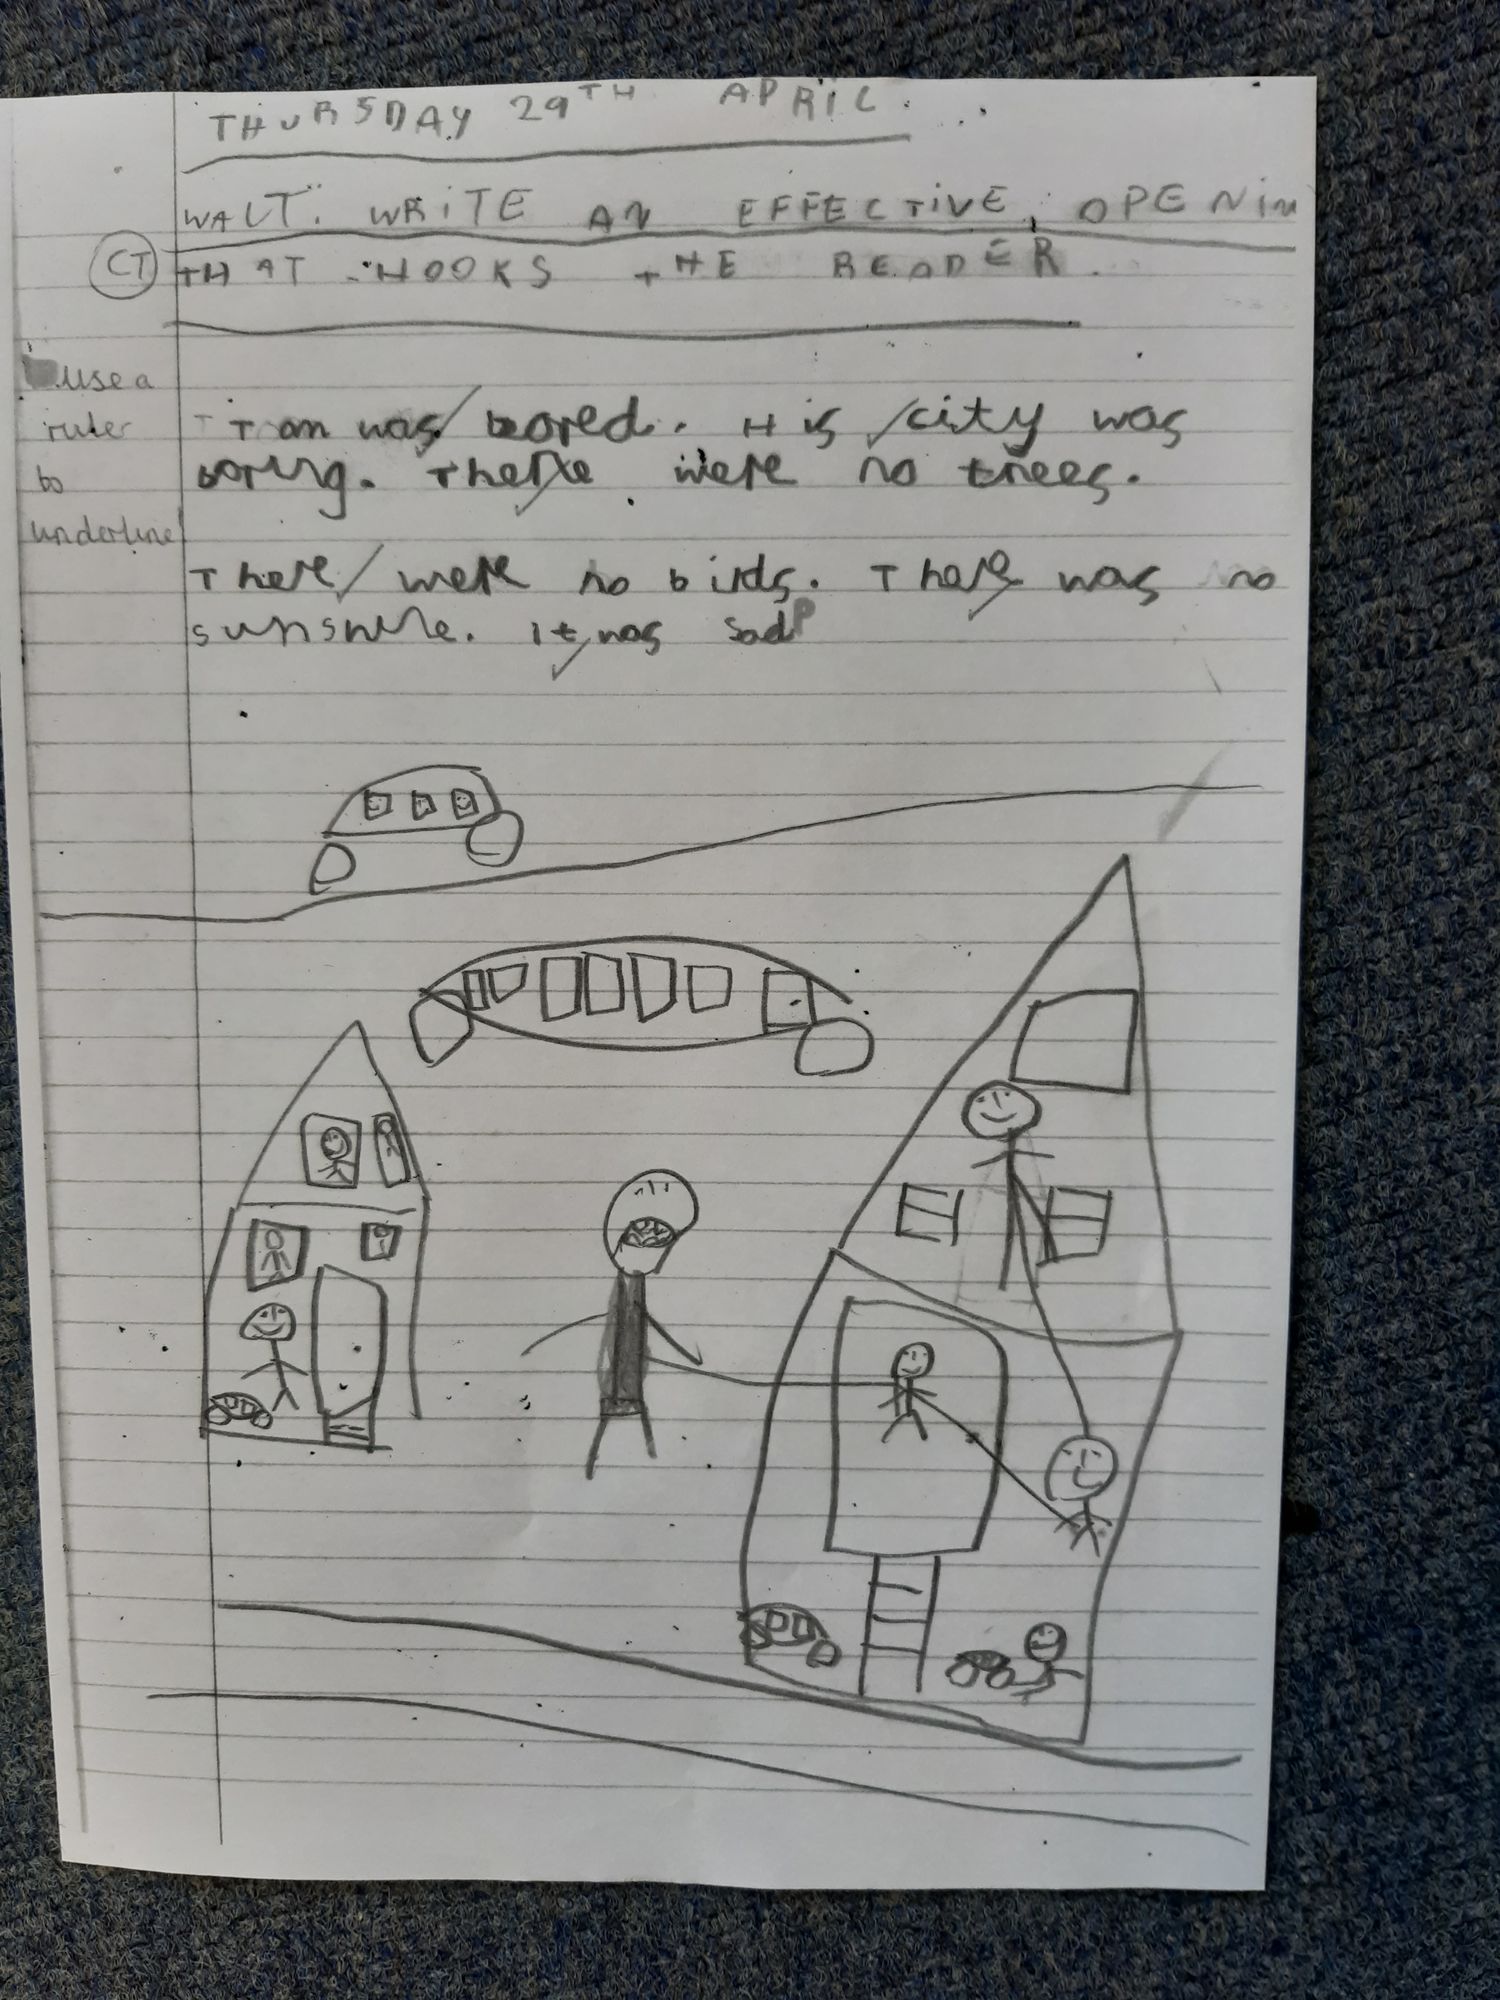 THURSDAY 29TH APRIL.
WALT. WRITE AN EFFECTIVE, OPENIN
CT
THAT HOOKS THE READER.
use a
ruler
to
underline
Tom was bored. His city was
boring. There were no trees.
There were no birds. There was no
sunshine. It was sad